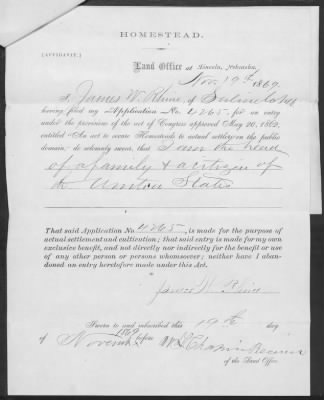 HOMESTEAD.
[AFFIDAVIT.]
Land Office at Lincoln, Nebraska,
Nov. 19th 1869
I, James W. Rhine, of Saline Co Neb
having filed my Application No. 4265, for an entry
under the provisions of the act of Congress approved May 20, 1862,
entitled "An act to secure Homesteads to actual settlers on the public
domain," do solemnly swear, that I am the head
of a family & a citizen of
the United States
That said Application No. 4265, is made for the purpose of
actual settlement and cultivation; that said entry is made for my own
exclusive benefit, and not directly nor indirectly for the benefit or use
of any other person or persons whomsoever; neither have I aban-
doned an entry heretofore made under this Act.
James W Rhine
Sworn to and subscribed this 19th day
of November 1869 before
Receiver
of the Land Office.